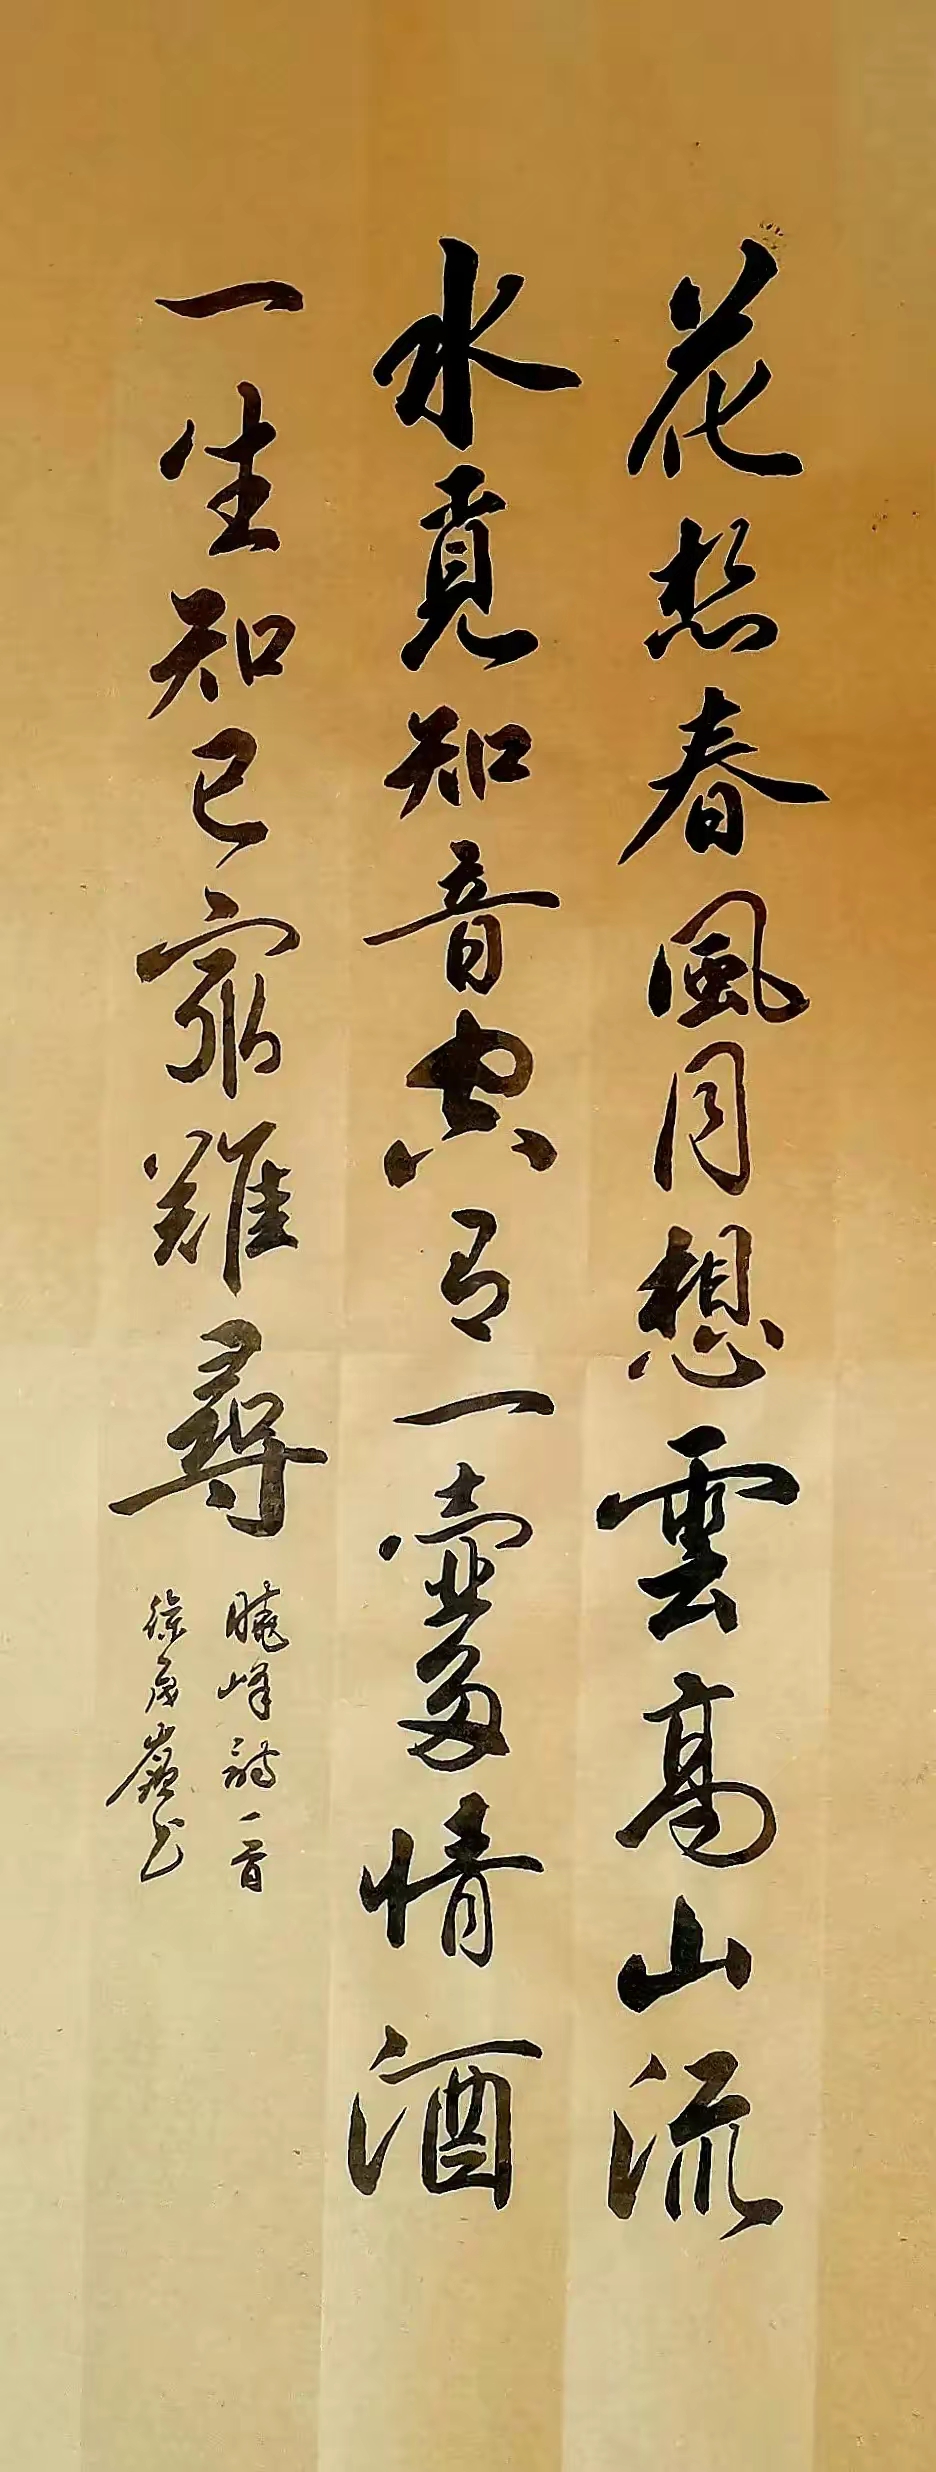 花愁春風月想雲高山流
水覓知音有一壺多情酒
一生知己寂難尋
曉峰詩一首
徐嶺书